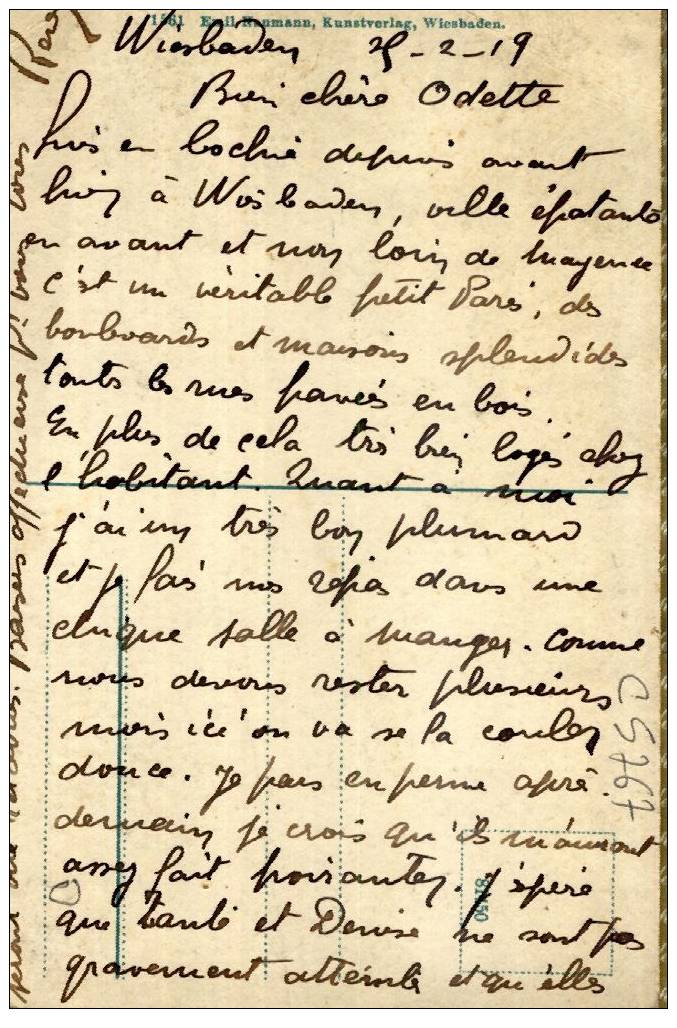 1561 Emil Naumann, Kunstverlag, Wiesbaden.
Wiesbaden 25-2-19
Bien chère Odette
Suis en bochie depuis avant
hier à Wiesbaden, ville épatante
en avant et non loin de Mayence
c'est un véritable petit Paris, des
boulevards et maisons splendides
toutes les rues pavées en bois.
En plus de cela très bien logés chez
l'habitant. Quant à moi
j'ai un très bon plumard
et je fais nos repas dans une
chique salle à manger. Comme
nous devons rester plusieurs
mois ici on va se la couler
douce. Je pars en perme après.
demain je crois qu'ils m'auront
assez fait poiroter. J'espère
que Tante et Denise ne sont pas
gravement atteinte et qu'elles
seront vite Baisers affectueux pr vous tous
D5767